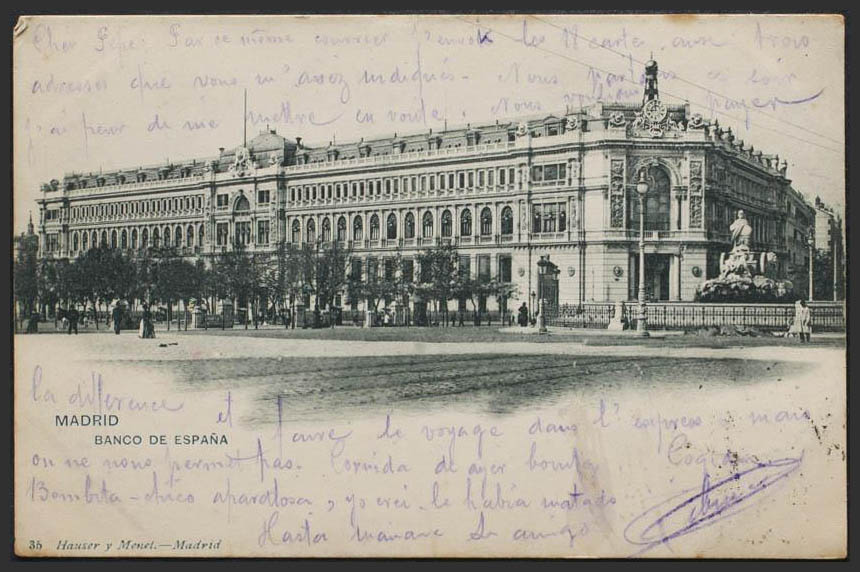 Cher Pepe: Par ce même courrier j'envoie les 11 carte, aux trois
adresses que vous m'avez indiqués - Nous partons ce soir
j'ai peur de me mettre en route. Nous voulions payer
la difference et faire le voyage dans l'express - mais
MADRID
BANCO DE ESPAÑA
on ne nous permet pas. Corrida de ayer bomba
Bombita-chico aparatosa, yo crei le habia matado
Hasta manana Su amigo
35 Hauser y Menet.—Madrid